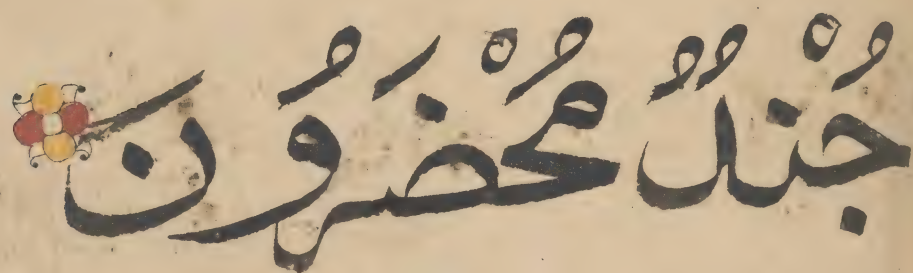 جُنْدٌ مُحْضَرُونَ